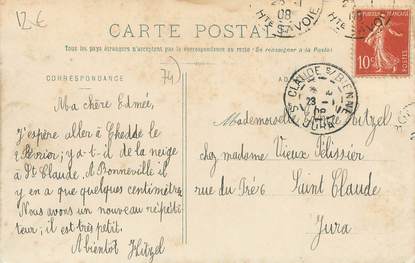 12€
08
Hte SAVOIE
CARTE POSTALE
Tous les pays étrangers n'acceptent pas la correspondance au recto (Se renseigner à la Poste)
CORRESPONDANCE
74)
Ma chère Edmée,
J'espère aller à Chedde le
Février; y a-t-il de la neige
à St Claude. A Bonneville il
y en a que quelques centimètres
Nous avons un nouveau répéti-
teur; il est très petit.
A bientôt Hitzel
10c
ST CLAUDE S/BIENNE
23 -1
08
JURA
Mademoiselle Hitzel
chez madame Vieux Pélissier
rue du Pré 6 Saint Claude
Jura